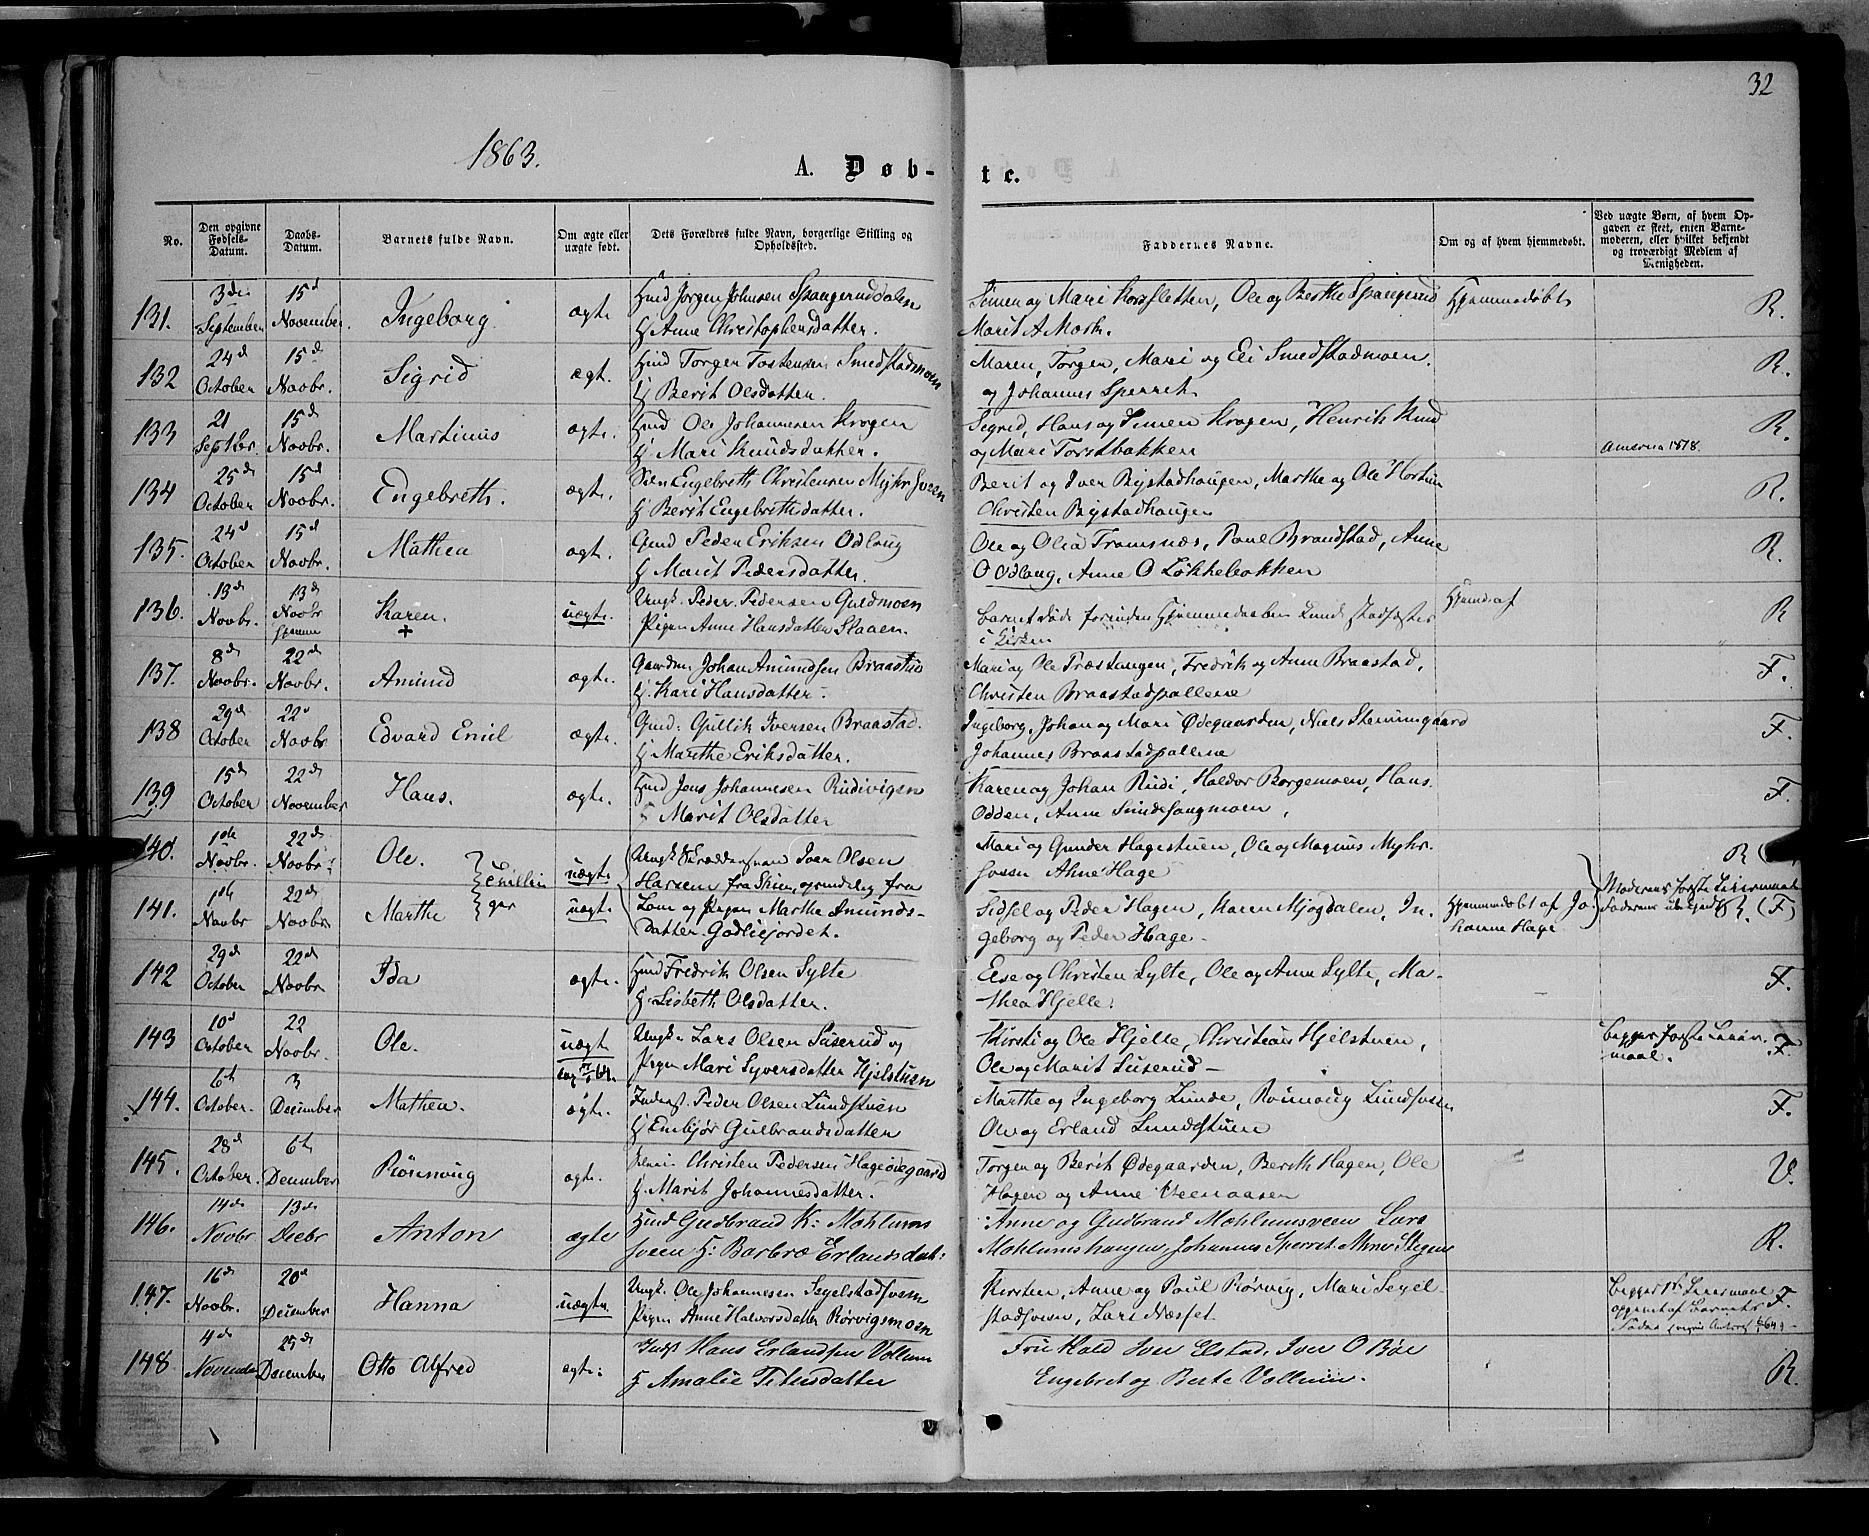 32
1863.
A. Døb-
te.
No.
Den opgivne Fødsels-Datum.
Daabs-Datum.
Barnets fulde Navn.
Om ægte eller uægte født.
Dets Forældres fulde Navn, borgerlige Stilling og Opholdssted.
Faddernes Navne.
Om og af hvem hjemmedøbt.
Ved uægte Børn, af hvem Opgaven er skeet, enten Barnemoderen, eller hvilket bekjendt og troværdigt Medlem af Menigheden.
131. 3die September 15d November. Ingeborg. ægte Hmd Jørgen Johnsen Spangeruddalen
H Anne Christophersdatter.
Simen og Mari Korsfletten, Ole og Berthe Spangerud Hjemmedøbt R.
Marit A Moshr.
132 24d October 15d Novbr. Sigrid ægt. Hmd Torger Tostensen Smedstadmoen
H Berit Olsdatter.
Maren, Torger, Mari og Eli Smedstadmoen. R.
og Johannes Sperret
133 21 Septbr. 15d Novbr. Martinus ægte. Hmd Ole Johannesen Krogen
H Mari Knudsdatter.
Sigrid, Hans og Simen Krogen, Henrik Knud R.
og Mari Torstbakken
America 1878.
134 25d October 15d Novbr. Engebreth. ægte. Engebreth Christensen Myhrsveen
H Berit Engebrethsdatter.
Berit og Iver Bystadhaugen, Marthe og Ole R.
Christen Bystadhaugen
135. 24d October 15d Novbr. Mathea ægt. Gmd Peder Eriksen Odloug
H Marit Pedersdatter.
Ole og Olia Tromsnæs, Paul Brandstad, Anne R.
O Odloug, Anne O Løkkebakken
136. 13d Novbr. 13d Novbr hjemme Karen. + uægte. Ungk. Peder Pedersen Guldmoen
Pigen Anne Hansdatter Staaen.
Barnet døde forinden Hjemmedaaben kunde stadfæstes Hjemd. af R
i Kirken
137. 8d Novbr. 22d Novbr. Amund ægte. Gaardm Johan Amundsen Braastad
H. Kari Hansdatter.
Mari og Ole Træstangen, Fredrik og Anne Braastad, F.
Christen Braastadpallene
138 29d October 22d Novbr Edvard Emil ægte. Gmd: Gullik Iversen Braastad.
H Marthe Eriksdatter.
Ingeborg, Johan og Mari Ødegaarden, Niels Stemmsgaard F.
Johannes Braastadpallene
139 15d October 22d November Hans. ægte. Hmd Jens Johannesen Rudivigen
H Marit Olsdatter
Karen og Johan Rudi, Haldor Borgemoen, Hans. F.
Odden, Anne Smidesangmoen,
140. 1ste Novbr. 22d Novbr. Ole. uægte. Ungk Skræddersvend Iver Olsen
Mari og Gunder Hagestuen, Ole og Magnus Myhr- R
Tvillinger
Harsem fra Skien, oprindelig fra
sveen Anne Hage
141. 1ste Novbr 22d Novbr. Marthe uægt. Lom og Pigen Marthe Amunds-
datter Godliejordet.
Sidsel og Peder Hagen, Karen Mjøgdalen, In- Hjemmedøbt af Jo-
geborg og Peder Hage. hanne Hage
Moderens første Leiermaal
Faderens ubekjendt R. (F)
142 29d October 22d Novbr Ida ægte. Hmd Fredrik Olsen Sylte
H. Lisbeth Olsdatter.
Else og Christen Sylte, Ole og Anne Sylte, Ma- F.
thea Hjelle.
143 10d October 22 Novbr. Ole. uægt Ungk. Lars Olsen Suserud og
Pigen Mari Syversdatter Hjelstuen
Kirsti og Ole Hjelle, Christian Hjelstuen,
Ole og Marit Suserud
Begges første Leier-
maal. F.
144. 6te October. 3 December Mathea. ægte. Inderst. Peder Olsen Lundstuen
H Embjør Gulbrandsdatter
Marthe og Ingeborg Lunde, Rønnoug Lundsveen F.
Ole og Erland Lundstuen
145. 28d October. 6te December Rønnoug ægte. Christen Pedersen Hageødegaard
H. Marit Johannesdatter.
Torger og Berit Ødegaarden, Berith Hagen, Ole V.
Hagen og Anne Veenaasen
146. 14de Novbr 13de Decbr Anton ægte Hmd Gudbrand K: Mæhlums
sveen H: Barbro Erlandsdat:
Anne og Gudbrand Mæhlumsveen Lars
Mæhlumshaugen Johannes Sperret Anne Stegen R.
147. 16d Novbr. 20d December Hanna uægte Ungk. Ole Johannesen Segelstadsveen
Pigen Anne Halvorsdatter Rørvigsmoen
Kirsten, Anne og Paul Rørvig, Mari Segel-
stadsveen, Lars Næsset.
Begges 1ste Leiermaal
opgivet af Barnets F.
Fader
148. 4de November 25de December Otto Alfred ægte: Indst Hans Erlandsen Vollum
H Amalie Petersdatter
Fru Hald Iver Elstad, Iver O Bøe
Engebret og Berte Vollum. R.